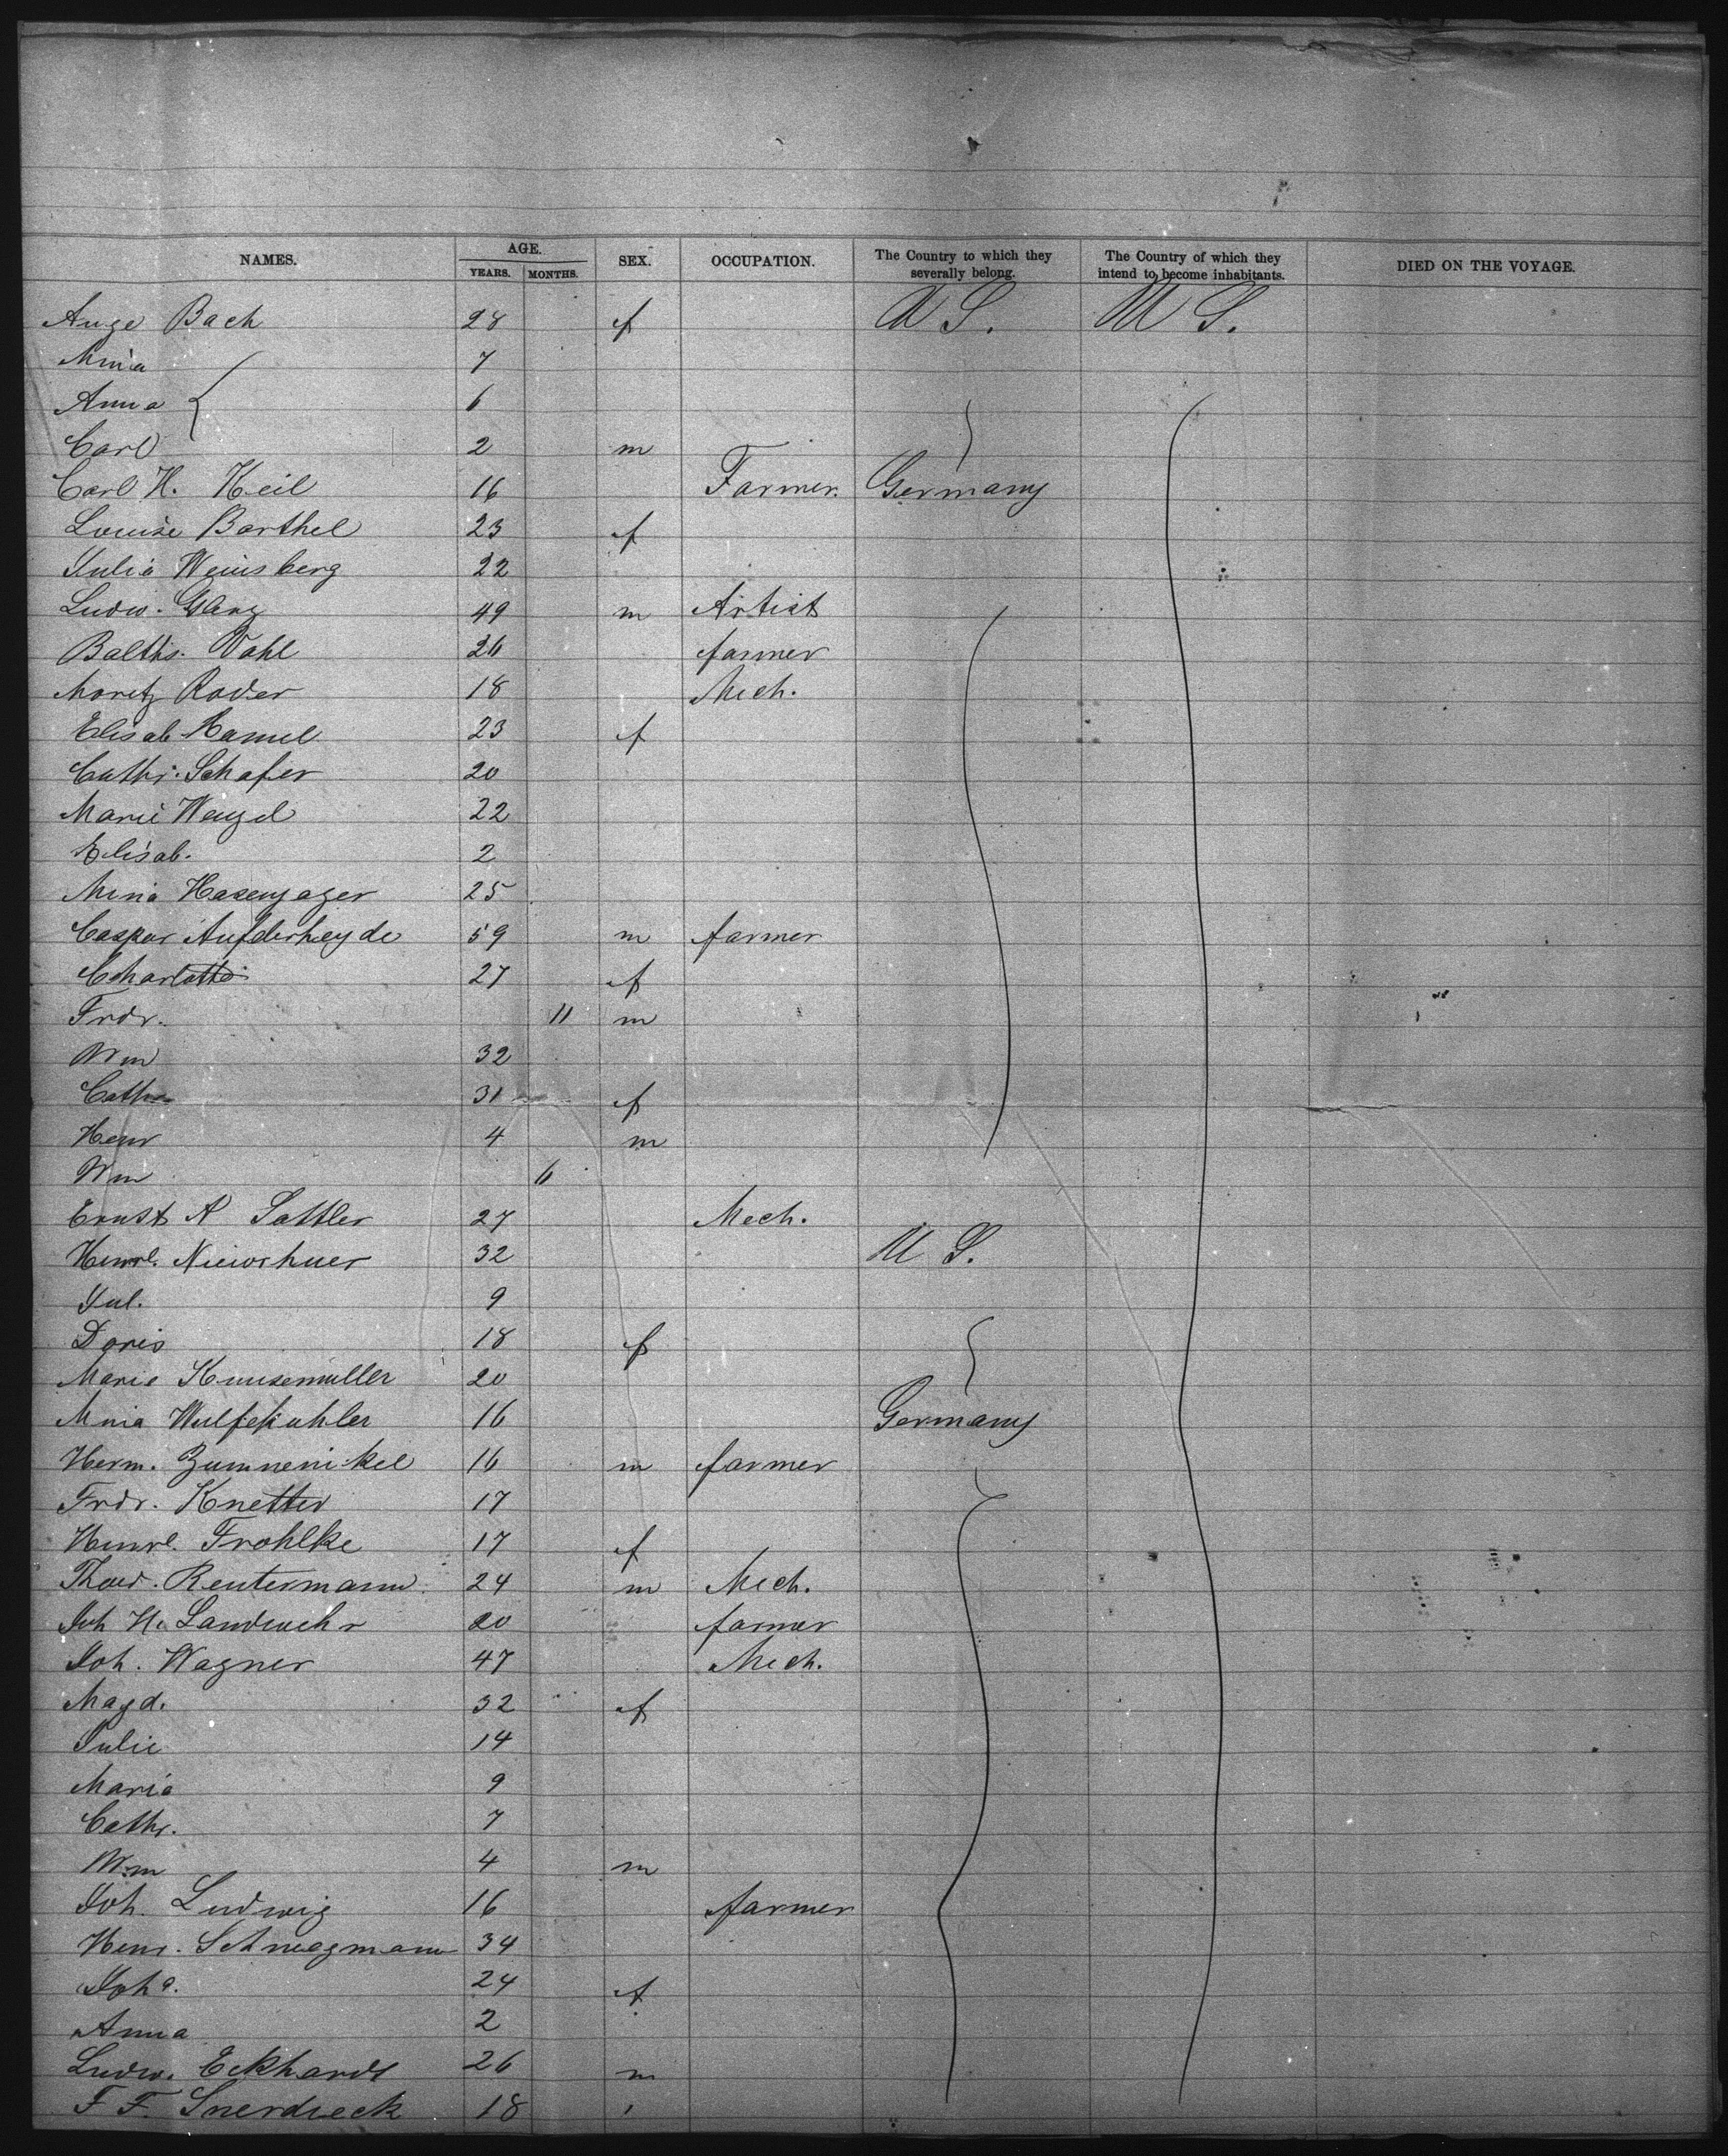 NAMES. AGE. YEARS. MONTHS. SEX. OCCUPATION. The Country to which they severally belong. The Country of which they intend to become inhabitants. DIED ON THE VOYAGE.
Auge Bach 28 f U S. U S.
Mina 7
Anna 6
Carl 2 m
Carl H. Keil 16 Farmer. Germany
Louise Barthel 23 f
Julia Weinsberg 22
Ludw. 49 m Artist
Balths. Vahl 26 farmer
Moritz Roder 18 Mech.
Elisab Hamel 23 f
Cathr. Schafer 20
Marie 22
Elisab. 2
Mina Hasenjager 25
Caspar Aufderheyde 59 m farmer
Charlotte 27 f
Frdr. 11 m
Wm 32
Cath 31 f
Henr 4 m
Wm 6
Ernst A Sattler 27 Mech.
Henrl. 32 U S.
Jul. 9
Doris 18 f
Marie 20
Mina Wulfekuhler 16 Germany
Herm. 16 m farmer
Frdr. Knetter 17
Henrl. Frohlke 17 f
Reutermann 24 m Mech.
Joh H. Landwehr 20 farmer
Joh. Wagner 47 Mech.
Magd. 32 f
Julie 14
Maria 9
Cathr. 7
Wm 4 m
Joh. Ludwig 16 farmer
Henr. 34
Joha. 24 f
Anna 2
Ludw. Eckhardt 26 m
F F. 18